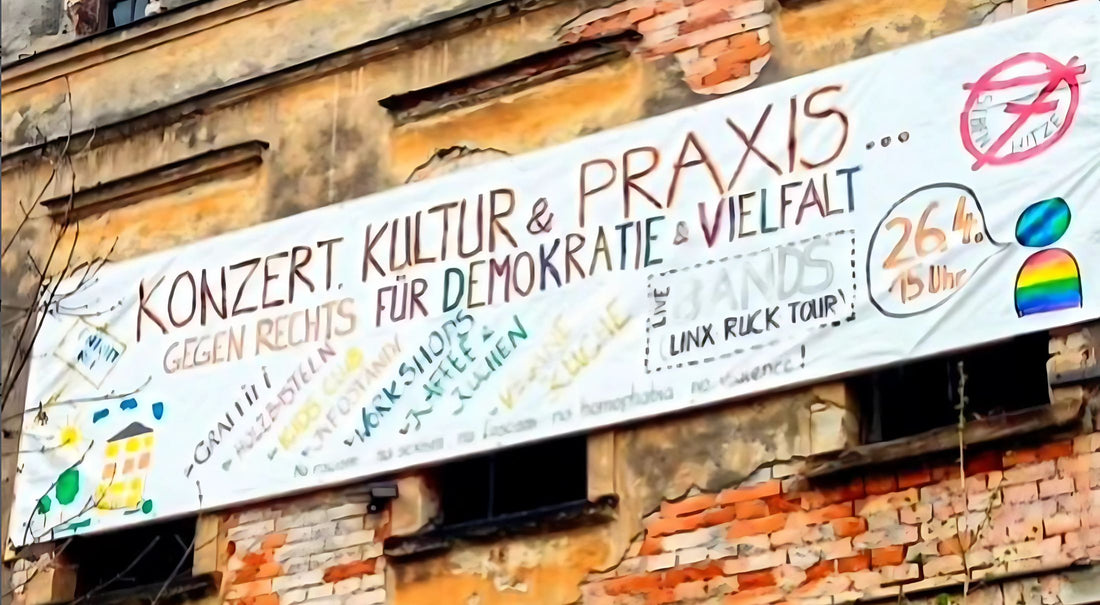 KONZERT. KULTUR & PRAXIS...
GEGEN RECHTS FÜR DEMOKRATIE & VIELFALT
26.4.
15 Uhr
-GRAFFITI
HOLZBASTELN
KIDS CLUB
INFOSTAND
WORKSHOPS
KAFFEE &
KUCHEN
VEGANE
KÜCHE
LIVE
BANDS
(LINX RUCK TOUR)
No racism no sexism no fascism no homophobia no violence!